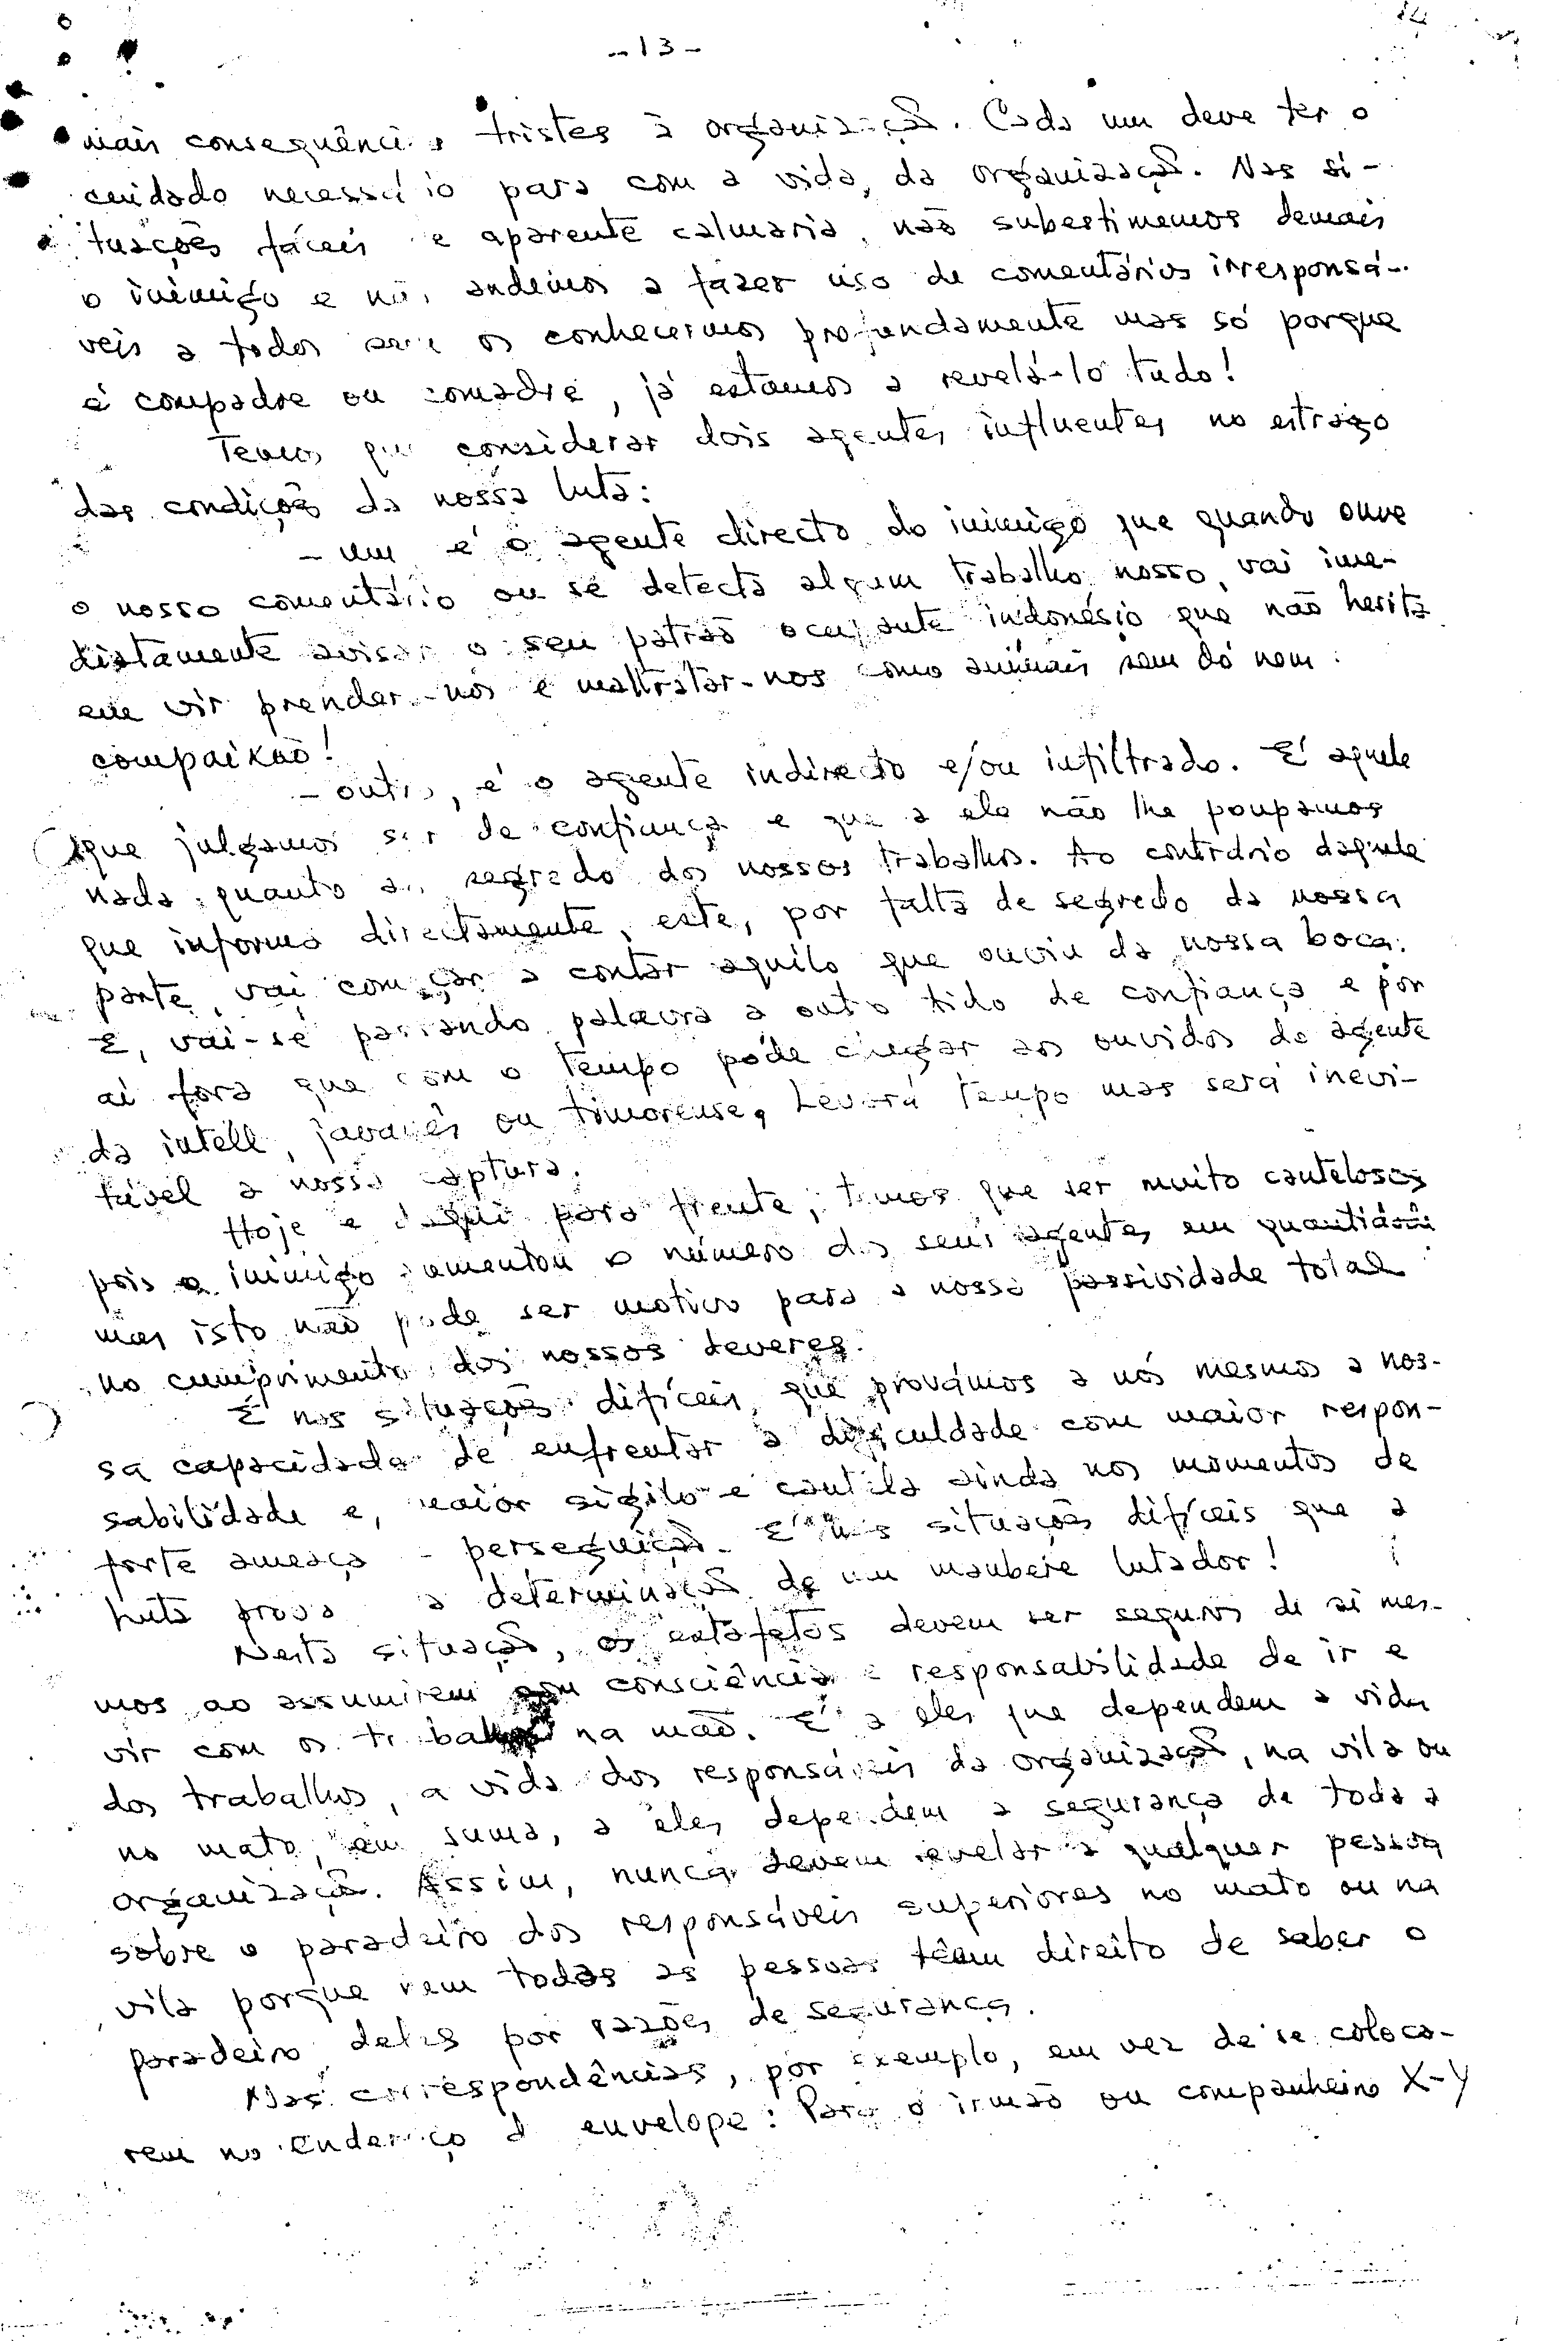 - 13 -
mais consequências tristes à organização. Cada um deve ter o
cuidado necessário para com a vida, da organização. Nas si-
tuações fáceis e aparente calmaria, não subestimemos demais
o inimigo e não andemos a fazer uso de comentários irresponsá-
veis a todos sem os conhecermos profundamente mas só porque
é compadre ou comadre, já estamos a revelá-lo tudo!
Temos que considerar dois agentes influentes no estrago
das condições da nossa luta:
- um é o agente directo do inimigo que quando ouve
o nosso comentário ou se detecta algum trabalho nosso, vai ime-
diatamente avisar o seu patrão ocupante indonésio que não hesita
em vir prender-nos e maltratar-nos como animais sem dó nem
compaixão!
- outro, é o agente indirecto e/ou infiltrado. É aquele
que julgamos ser de confiança e que a ele não lhe poupamos
nada quanto ao segredo dos nossos trabalhos. Ao contrário daquele
que informa directamente, este, por falta de segredo da nossa
parte, vai começar a contar aquilo que ouviu da nossa boca.
E, vai-se passando palavra a outo tido de confiança e por
aí fora que com o tempo pode chegar aos ouvidos do agente
da intell, javanês ou timorense. Levará tempo mas será inevi-
tável a nossa captura.
Hoje e daqui para frente, temos que ser muito cautelosos
pois o inimigo aumentou o número dos seus agentes em quantidade
mas isto não pode ser motivo para a nossa passividade total
no cumprimento dos nossos deveres.
É nas situações difíceis que provámos a nós mesmos a nos-
sa capacidade de enfrentar a dificuldade com maior respon-
sabilidade e, maior sigilo e cautela ainda nos momentos de
forte ameaça - perseguição. É nas situações difíceis que a
luta prova a determinação de um maubere lutador!
Nesta situação, os estafetas devem ser seguros de si mes-
mos ao assumirem com consciência e responsabilidade de ir e
vir com os trabalhos na mão. É a eles que dependem a vida
dos trabalhos, a vida dos responsáveis da organização, na vila ou
no mato, em suma, a eles dependem a segurança de toda a
organização. Assim, nunca devem revelar a qualquer pessoa
sobre o paradeiro dos responsáveis superiores no mato ou na
vila porque nem todas as pessoas têem direito de saber o
paradeiro deles por razões de segurança.
Nas correspondências, por exemplo, em vez de se coloca-
rem no endereço d envelope: Para o irmão ou companheiro X-Y